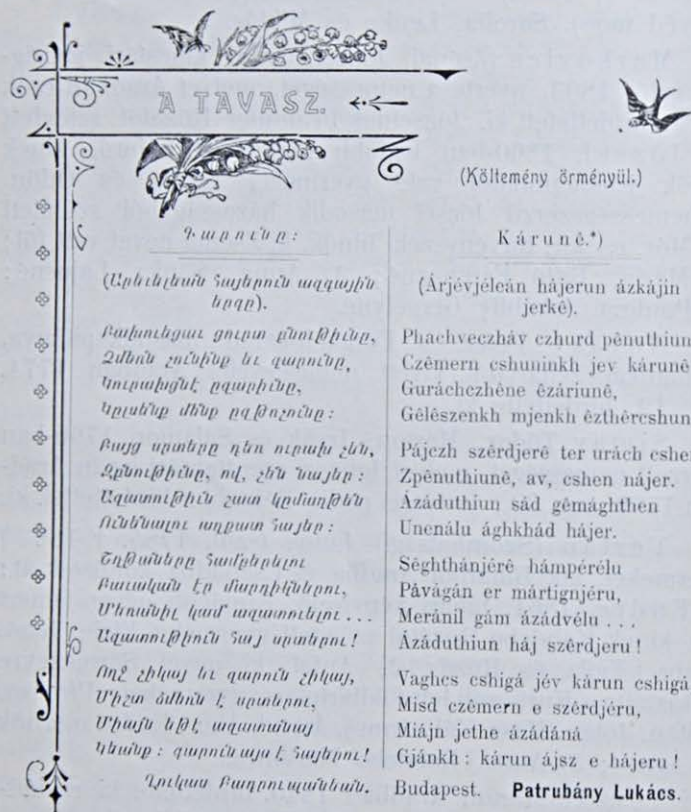 A TAVASZ.
(Költemény örményül.)
Գարունը:
(Արեւելեան հայերուն ազգային
երգը).
Բախուեցաւ ցուրտ բնութիւնը,
Զմեռն չունինք եւ գարունը,
Կուրախցնէ զարիւնը,
Կըլսենք մենք ըզթռչունը:
Բայց սրտերը դեռ ուրախ չեն,
Զբնութիւնը, ով, չեն նայեր:
Ազատութիւն շատ կըմաղթեն
Ունենալու աղքատ հայեր:
Շղթաները համբերելու
Բաւական էր մարդիկներու,
Մեռանիլ կամ ազատուելու ...
Ազատութիւն հայ սրտերու!
Ողջ չիկայ եւ գարուն չիկայ,
Միշտ ձմեռն է սրտերու,
Միայն եթէ ազատանայ
Կեանք: գարուն այս է հայերու!
Ղուկաս Բադրուպանեան.
Kárunê.*)
(Árjévjéleán hájerun ázkájin
jerkê).
Phachveczháv czhurd pênuthiun
Czêmern cshuninkh jev kárunê
Guráchczhêne êzáriunê,
Gêlêszenkh mjenkh êzthêrcshun
Pájczh szêrdjerê ter urách cshen
Zpênuthiunê, av, cshen nájer.
Ázáduthiun sád gêmághthen
Unenálu ághkhád hájer.
Sêghthánjérê hámpérélu
Pâvágán er mártignjéru,
Merânil gám ázádvélu ...
Ázáduthiun háj szêrdjeru!
Vaghcs cshigá jév kárun cshigá
Misd czêmern e szêrdjéru,
Miájn jethe ázádáná
Gjánkh: kárun ájsz e hájeru!
Budapest. Patrubány Lukács.